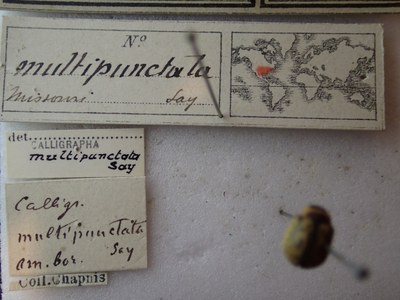 Nº
multipunctata
Missouri Say
det.
CALLIGRAPHA
multipunctata
Say
Calligr.
multipunctata
Say
am. bor.
Coll. Chapuis